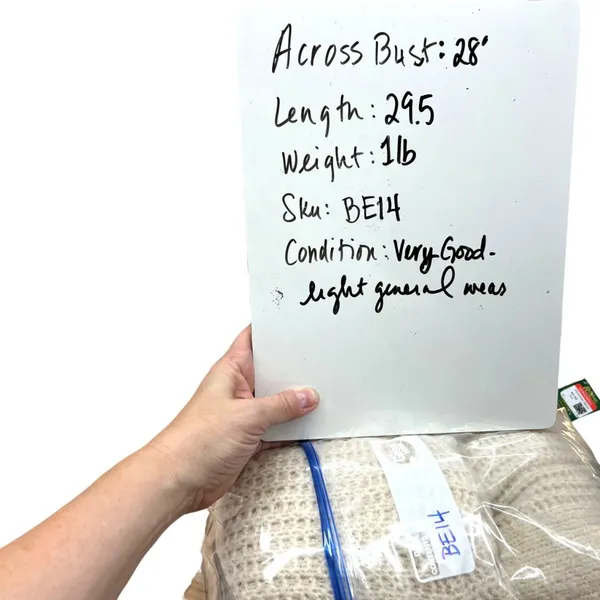 Across Bust: 28"
Length: 29.5
Weight: 1lb
Sku: BE14
Condition: Very Good-
light general wear
BE14